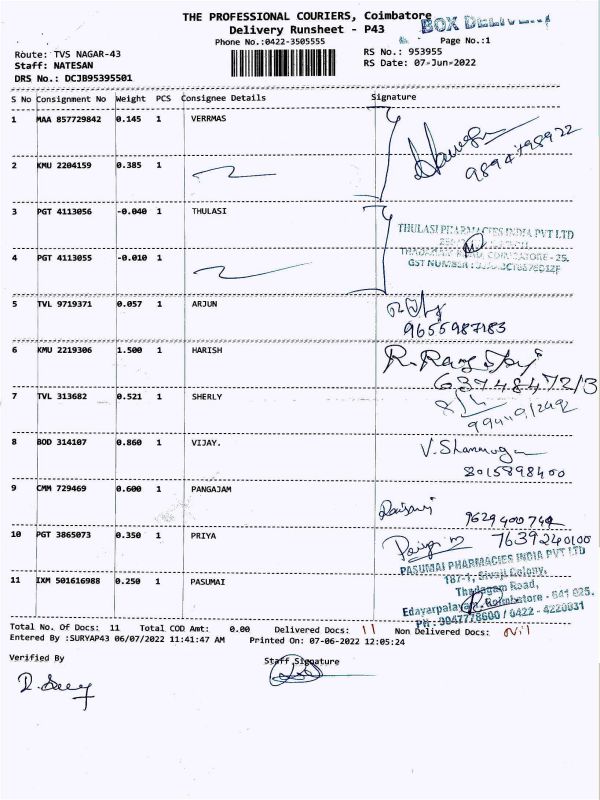 THE PROFESSIONAL COURIERS, Coimbatore
BOX DELIVERY
Delivery Runsheet - P43
Phone No.:0422-3505555
Page No.:1
Route: TVS NAGAR-43
RS No.: 953955
Staff: NATESAN
RS Date: 07-Jun-2022
DRS No.: DCJB95395501
S No Consignment No Weight PCS Consignee Details Signature
1 MAA 857729842 0.145 1 VERRMAS
9894798922
2 KMU 2204159 0.385 1
3 PGT 4113056 -0.040 1 THULASI
THULASI PHARMACIES INDIA PVT LTD
4 PGT 4113055 -0.010 1
THADAGAM ROAD, COIMBATORE - 25.
GST NUMBER :
5 TVL 9719371 0.057 1 ARJUN
9655987183
6 KMU 2219306 1.500 1 HARISH
63748472/3
7 TVL 313682 0.521 1 SHERLY
8 BOD 314107 0.860 1 VIJAY.
8015898400
9 CMM 729469 0.600 1 PANGAJAM
9629400742
10 PGT 3865073 0.350 1 PRIYA
7639240100
PASUMAI PHARMACIES INDIA PVT LTD
11 IXM 501616988 0.250 1 PASUMAI
187-1, Sivaji Colony,
Thadagam Road,
Edayarpalayam, Coimbatore - 641 025.
Ph : 9047778600 / 0422 - 4220031
Total No. Of Docs: 11 Total COD Amt: 0.00 Delivered Docs: 11 Non Delivered Docs: Nil
Entered By :SURYAP43 06/07/2022 11:41:47 AM Printed On: 07-06-2022 12:05:24
Verified By Staff Signature